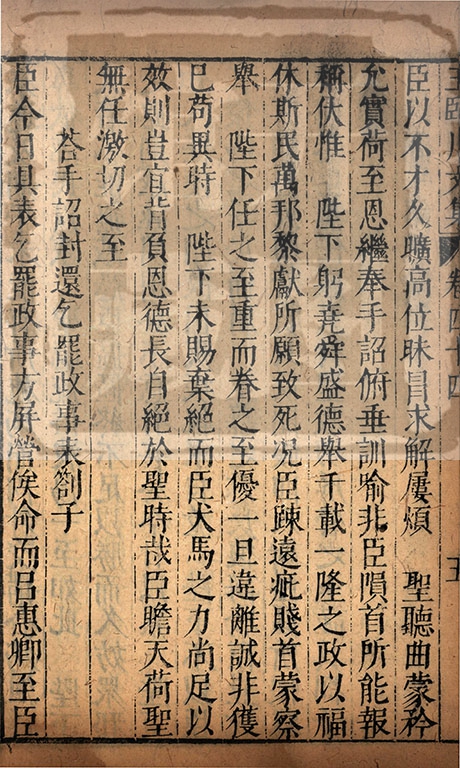 王臨川文集 卷四十四 五
臣以不才久曠高位昧冒求解屢煩 聖聽曲蒙矜
允實荷至恩繼奉手詔俯垂訓喻非臣隕首所能報
稱伏惟 陛下躬堯舜盛德舉千載一隆之政以福
休斯民萬邦黎獻所願致死况臣踈遠疵賤首蒙察
舉 陛下任之至重而眷之至優一旦違離誠非獲
已苟異時 陛下未賜棄絕而臣犬馬之力尚足以
效則豈宜背負恩德長自絕於聖時哉臣瞻天荷聖
無任激切之至
荅手詔封還乞罷政事表劄子
臣今日具表乞罷政事方屏營俟命而呂惠卿至臣